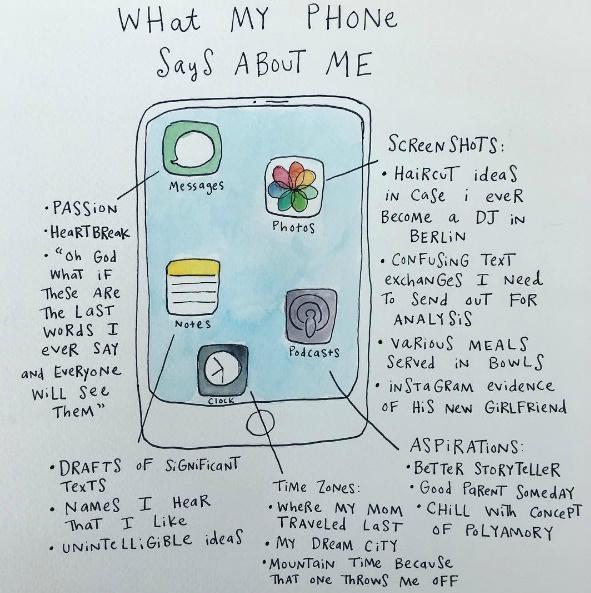 WHAT MY PHONE
SAYS ABOUT ME
Messages
Photos
Notes
Podcasts
CLOCK
• PASSION
• HEARTBREAK
• "Oh God
WHAT IF
THESE ARE
THE LAST
WORDS I
EVER SAY
AND EVERYONE
WILL SEE
THEM"
SCREENSHOTS:
• HAIRCUT IDEAS
IN CASE i EVER
BECOME A DJ IN
BERLIN
• CONFUSING TEXT
EXCHANGES I NEED
TO SEND OUT FOR
ANALYSIS
• VARIOUS MEALS
SERVED IN BOWLS
• INSTAGRAM EVIDENCE
OF HIS NEW GIRLFRIEND
• DRAFTS OF SIGNIFICANT
TEXTS
• NAMES I HEAR
THAT I LIKE
• UNINTELLIGIBLE IDEAS
TIME ZONES:
• WHERE MY MOM
TRAVELED LAST
• MY DREAM CITY
• MOUNTAIN TIME BECAUSE
THAT ONE THROWS ME OFF
ASPIRATIONS:
• BETTER STORYTELLER
• GOOD PARENT SOMEDAY
• CHILL WITH CONCEPT
OF POLYAMORY